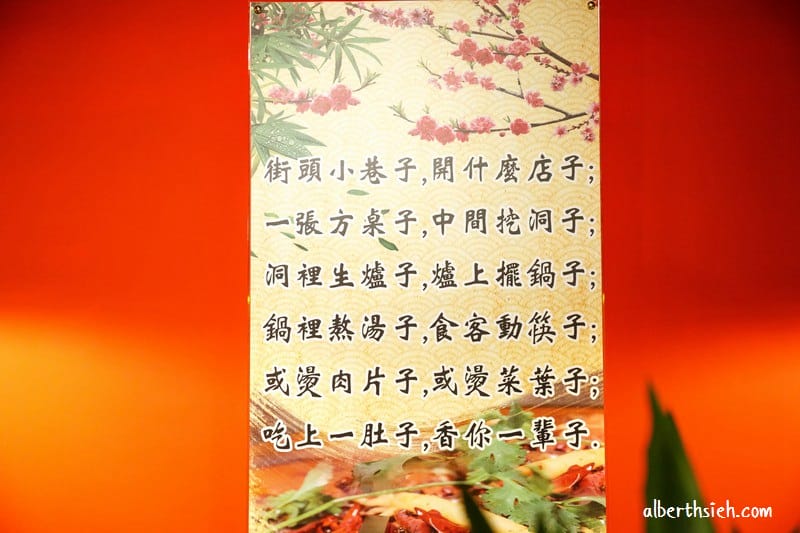 街頭小巷子,開什麼店子;
一張方桌子,中間挖洞子;
洞裡生爐子,爐上擺鍋子;
鍋裡熬湯子,食客動筷子;
或燙肉片子,或燙菜葉子;
吃上一肚子,香你一輩子.
alberthsieh.com